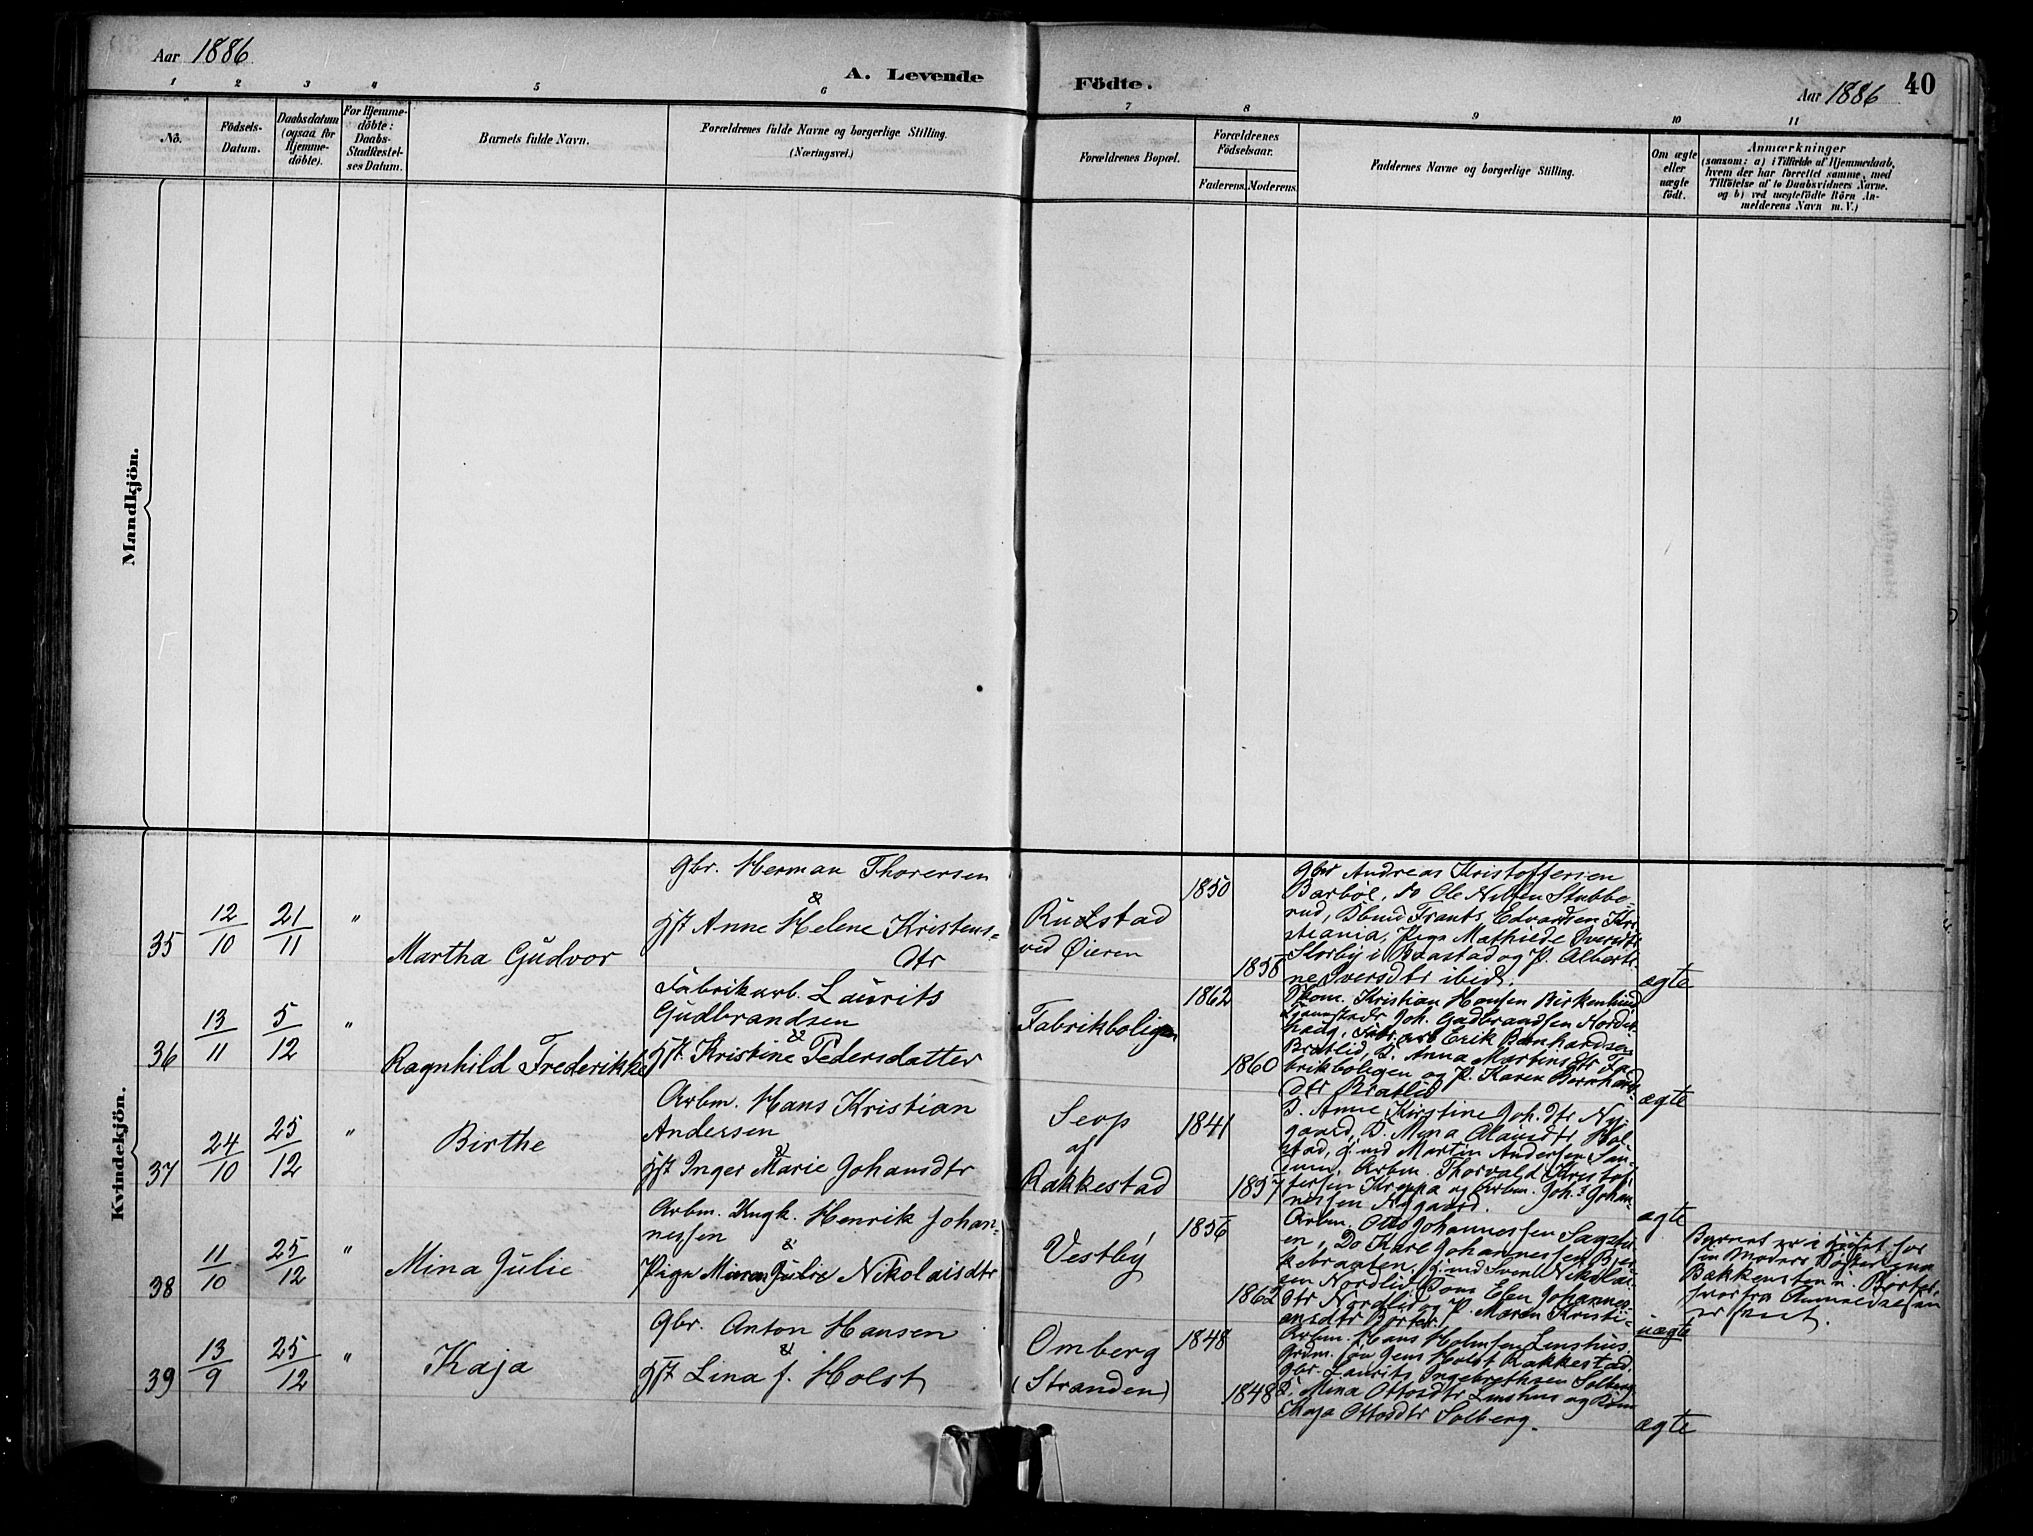 Aar 1886
A. Levende Födte.
Aar 1886 40
1 2 3 4 5 6 7 8 9 10 11
No.
Födsels-
Datum.
Daabsdatum
(ogsaa for
Hjemme-
döbte).
For Hjemme-
döbte:
Daabs-
Stadfæstel-
ses Datum.
Barnets fulde Navn.
Forældrenes fulde Navne og borgerlige Stilling.
(Næringsvei.)
Forældrenes Bopæl.
Forældrenes
Födselsaar.
Faderens. Moderens.
Faddernes Navne og borgerlige Stilling.
Om ægte
eller
uægte
födt.
Anmærkninger
(saasom: a) i Tilfælde af Hjemmedaab,
hvem der har forrettet samme, med
Tilföielse af to Daabsvidners Navne.
og b) ved uægtefödte Börn An-
melderens Navn m. V.)
Mandkjön.
Kvindekjön.
35
12/10
21/11
"
Martha Gudvor
Gbr. Herman Thoresen
&
Hst Anne Helene Kristens-
dtr
Rudstad
ved Øieren
1850
1858
Gbr Andreas Kristoffersen
Barbøl, do Ole Nilsen Stubbe-
rud, Frants Edvardsen Kri-
stiania, Pige Mathilde Iversdtr
Slorby i Baastad og P. Alberti-
ne Iversdtr ibid.
ægte
36
13/11
5/12
"
Ragnhild Frederikke
Fabrikarb. Laurits
Gudbrandsen
&
Hst Kristine Pedersdatter
Fabrikboligen
1862
1860
Kristian Hansen Birkenlund
Joh. Gudbrandsen Norder-
haug, Fabr. arb Erik Bernhardsen
Bratlid, P. Anna Martinsdtr Fa-
brikboligen og P. Karen Bernhards-
dtr Bratlid
ægte
37
24/10
25/12
"
Birthe
Arbm. Hans Kristian
Andersen
&
Hst Inger Marie Johansdtr
Seop
af
Rakkestad
1841
1857
P. Anne Kirstine Joh.dtr Ny-
gaard, P. Mina Olausdtr Hol-
stad, Martin Andersen San-
dum, Arbm. Thorvald Kristof-
fersen Kroppa og Arbm. Joh.s Johan-
nessen Nygaard.
ægte
38
11/10
25/12
"
Mina Julie
Arbm. Ungk. Henrik Johan-
nessen
&
Pige Minna Julie Nikolaisdtr
Vestby
1856
1862
Arbm. Otto Johannessen
en, Do Karl Johannessen
Svend Nikolai-
sen Nordlid, Pige Elen Johannes-
dtr Nordlid og P. Maren Kristi-
ansdtr Børter
uægte
Barnet er i Huset hos
sin Moders
Bakkensten u. Børter,
hvorfra Anmeldelsen
er sket.
39
13/9
25/12
"
Kaja
Gbr. Anton Hansen
&
Hst Lina f. Holst
Omberg
(Stranden)
1848
1848
Arbm. Hans Holmsen Linshus.
Grdm. søn Jens Holst Rakkestad
Gbr. Laurits Ingebrethsen Solberg
P. Mina Ottosdtr Linshus og
Kaja Ottosdtr Solberg.
ægte